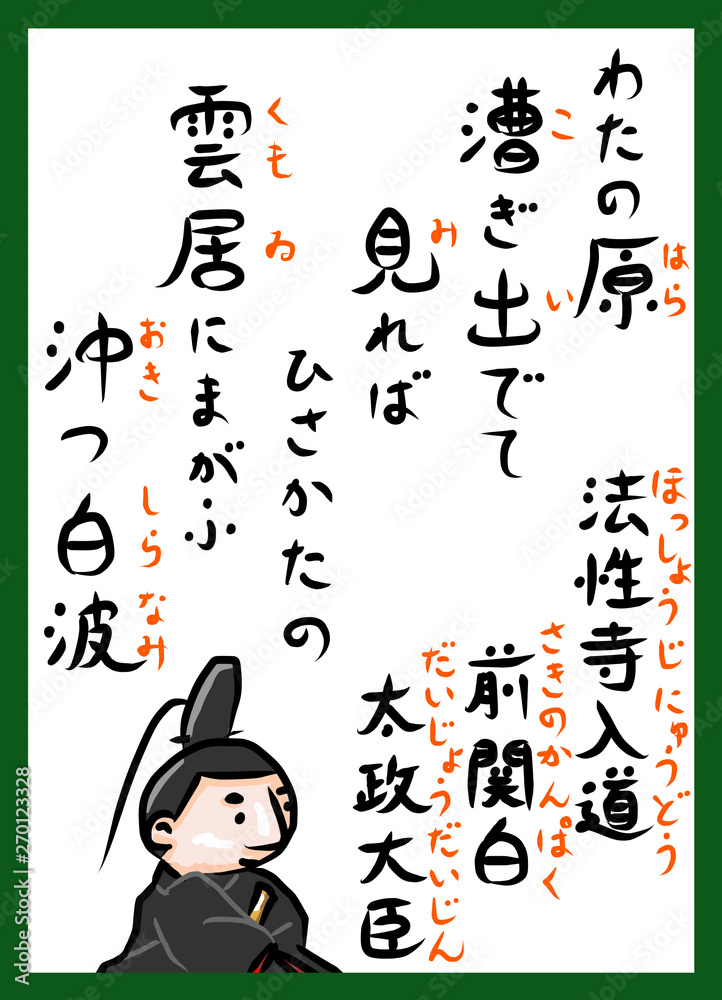 わたの原
はら
漕ぎ出でて
こ い
見れば
み
ひさかたの
雲居にまがふ
くも ゐ
沖つ白波
おき しらなみ
法性寺入道
ほっしょうじにゅうどう
前関白
さきのかんぱく
太政大臣
だいじょうだいじん
Adobe Stock | #270123328